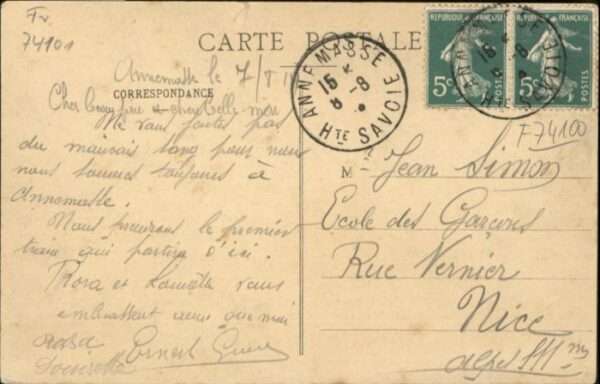 Fr.
74101
CARTE POSTALE
Annemasse le 7/8
CORRESPONDANCE
Cher beau père et chère belle-mère
Ne vous faites pas
du mauvais sang pour nous
nous sommes toujours à
Annemasse.
Nous prendrons le premier
train qui partira d'ici.
Rosa et vous
embrassent ainsi que moi
Rosa
Ernest
ANNEMASSE
15
8-8
HTE SAVOIE
REPUBLIQUE FRANÇAISE
5c
POSTES
REPUBLIQUE FRANÇAISE
5c
POSTES
ANNEMASSE
15
8-8
HTE SAVOIE
F74100
M Jean Simon
Ecole des Garçons
Rue Vernier
Nice
Alpes Mmes